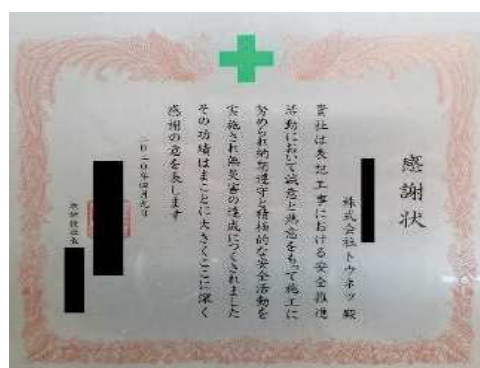 感謝状
株式会社トウネツ殿
貴社は表記工事における安全推進
活動において誠意と熱意をもって施工に
努められ納期遵守と積極的な安全活動を
実施され無災害の達成につくされました
その功績はまことに大きくここに深く
感謝の意を表します
二〇二〇年四月九日